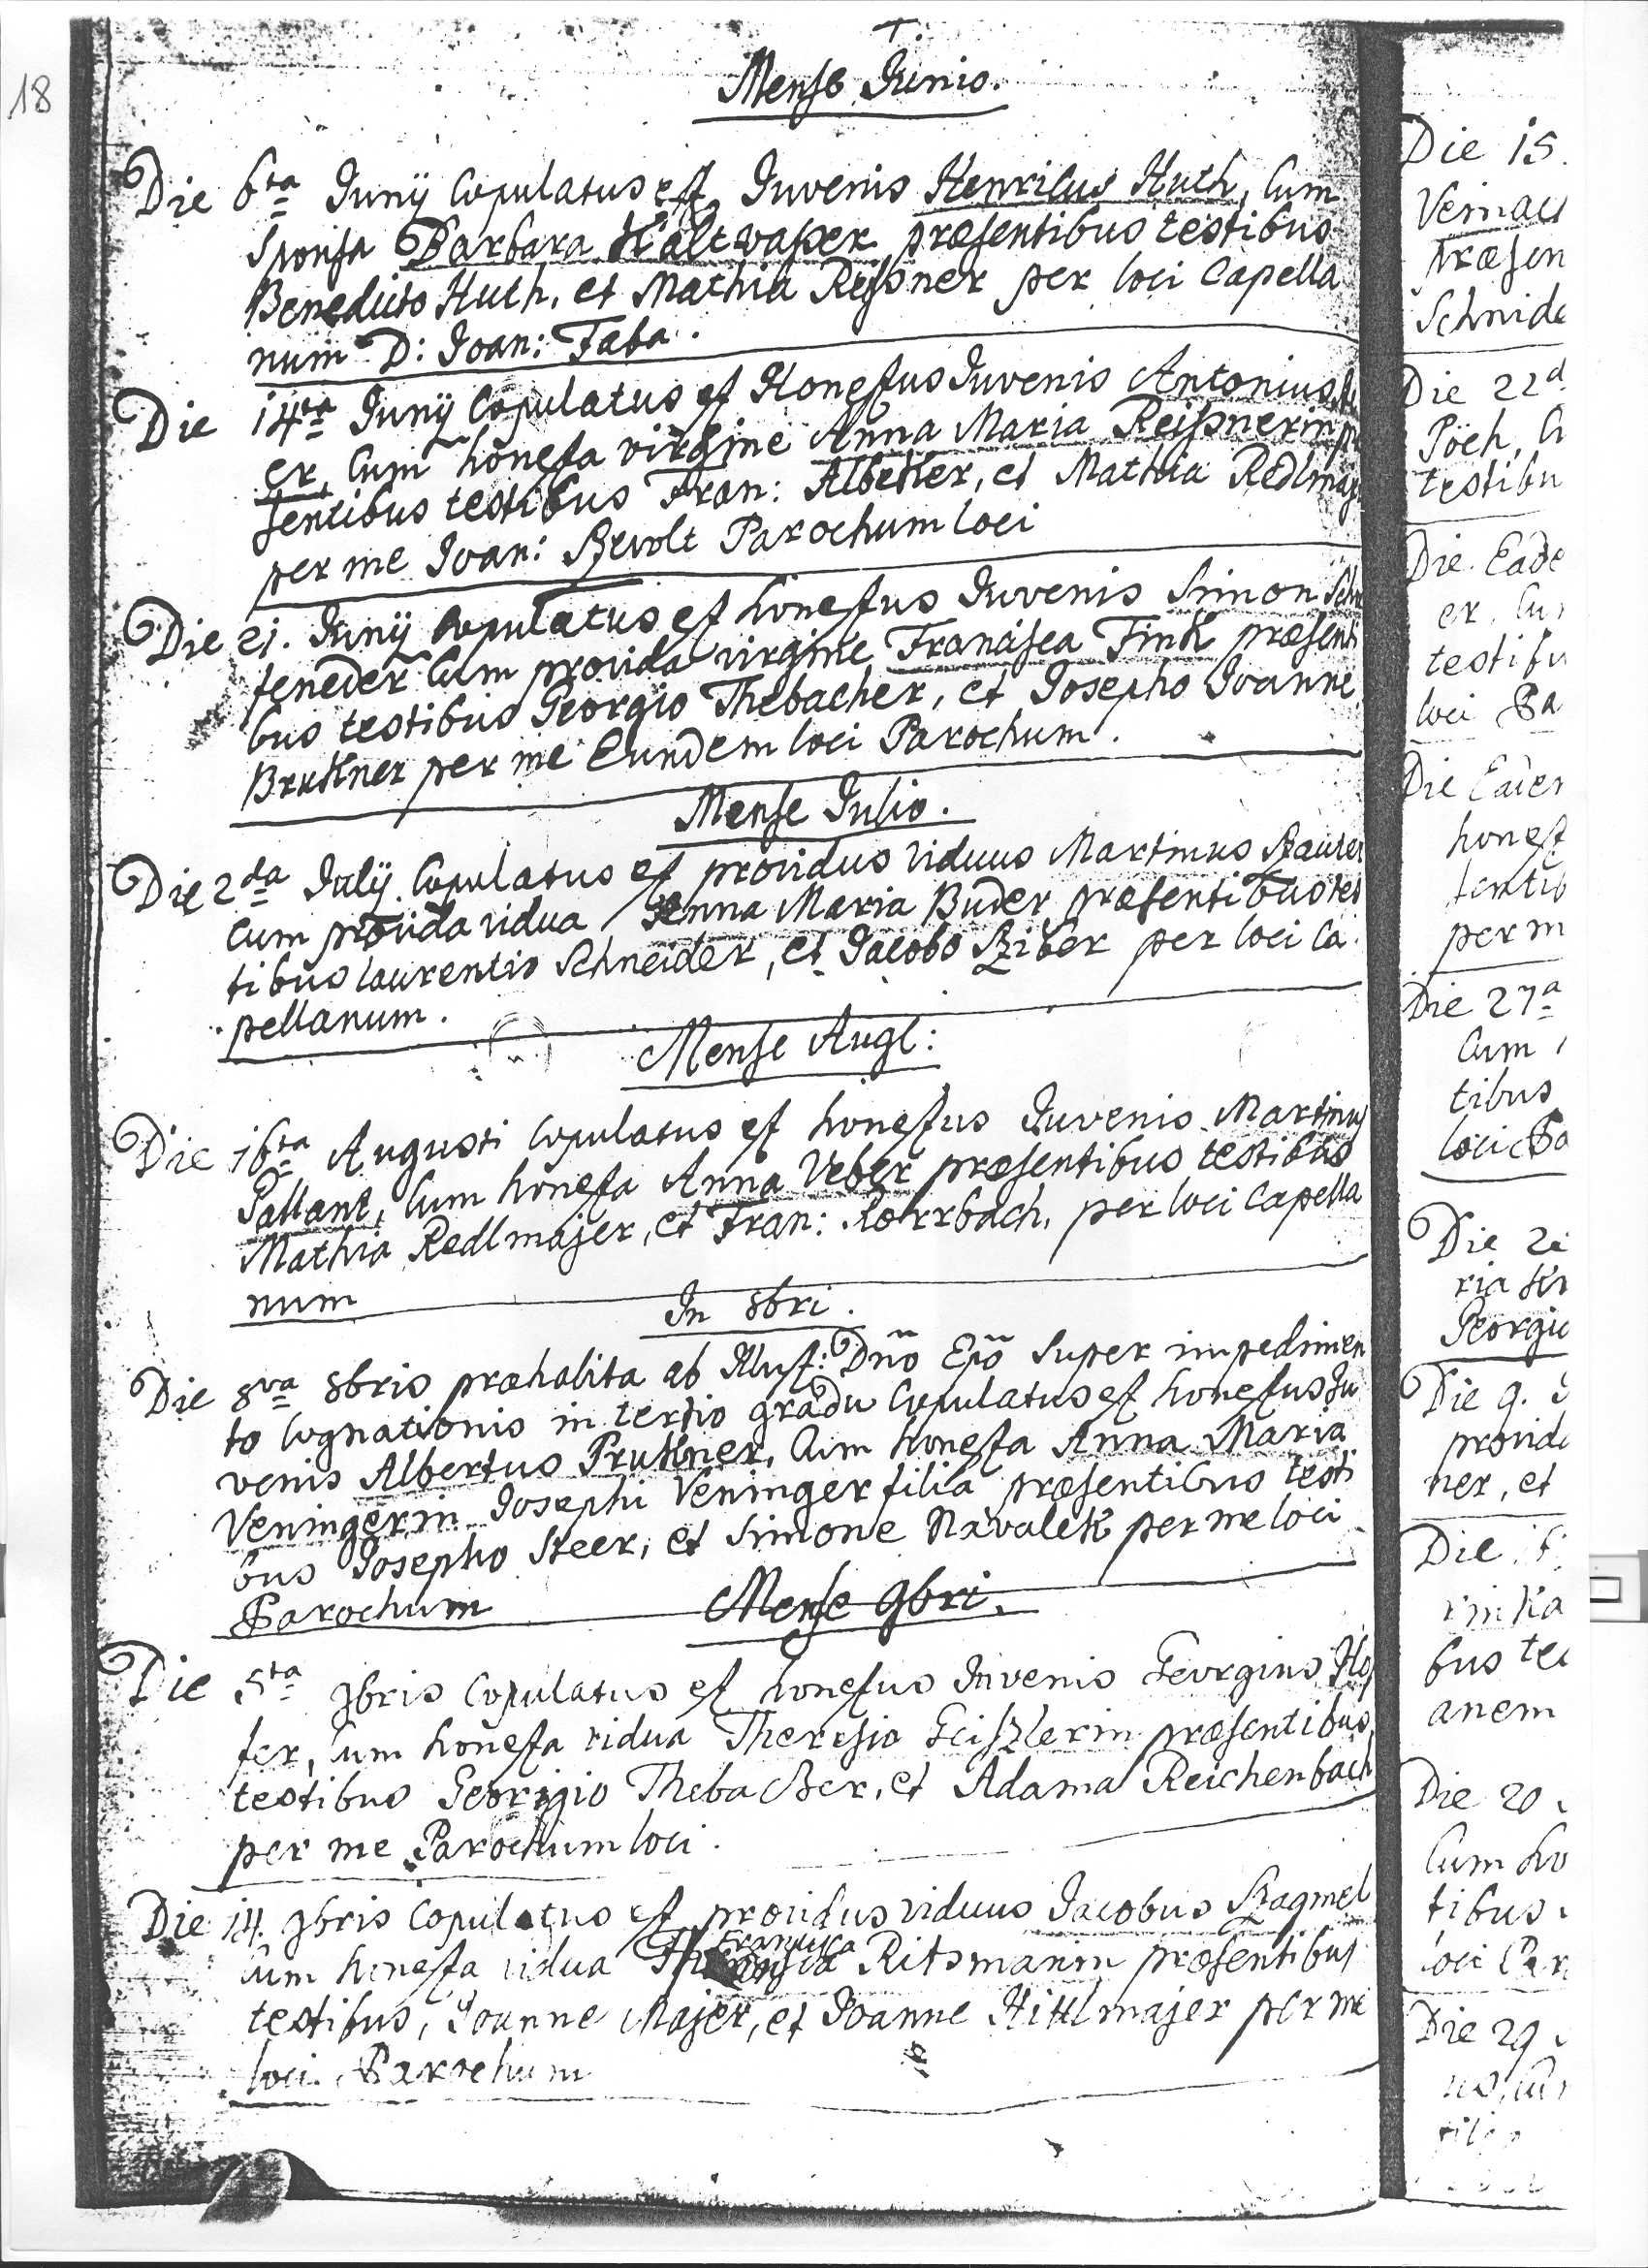 18
Mense Junio.
Die 6ta Junij Copulatus est Juvenis Henricus Huth, Cum
Sponsa Barbara Kaltvaßer præsentibus testibus
Benedicto Huth, et Mathia Reißner per loci Capella
num D: Joan: Faba.
Die 14ta Junij Copulatus est Honestus Juvenis Antonius
er, Cum honesta virgine Anna Maria Reißnerin præ
sentibus testibus Fran: Albeker, et Mathia Redlmaj
per me Joan: Parochum loci
Die 21. Junij Copulatus est honestus Juvenis Simon Sch
feneder Cum provida virgine Francisca Fink præsenti
bus testibus Georgio Thebacher, et Josepho Joanne
Brukner per me Eundem loci Parochum.
Mense Julio.
Die 2da Julij Copulatus est providus viduus Martinus
Cum provida vidua Anna Maria Buder præsentibus tes
tibus Laurentio Schneider, et Jacobo Sziber per loci Ca
pellanum.
Mense Augt:
Die 16ta Augusti Copulatus est honestus Juvenis Martinus
Pallant, Cum honesta Anna Veber præsentibus testibus
Mathia Redlmajer, et Fran: Rorrbach, per loci Capella
num
In 8bri.
Die 8va 8bris præhabita ab Illust: Dno Epo Super impedimen
to Cognationis in tertio gradu Copulatus est honestus Ju
venis Albertus Prukner, Cum honesta Anna Maria
Veningerin Josephi Veninger filia præsentibus testi
bus Josepho Steer, et Simone Navalek per me loci
Parochum
Mense 9bri.
Die 5ta 9bris Copulatus est honestus Juvenis Georgius Hof
fer, Cum honesta vidua Theresia Geiszlerin præsentibus
testibus Georigio Thebacher, et Adama Reichenbach
per me Parochum loci.
Die 14. 9bris Copulatus est providus viduus Jacobus Szagmel
Cum honesta vidua Francisca Ritsmanin præsentibus
testibus, Joanne Majer, et Joanne Hittlmajer per me
loci Parochum
Die 15.
præsen
Schnide
Die 22d
Pöch, C
testibu
Die Eade
er, Cu
testibu
loci Pa
Die Eader
honest
sentib
per m
Die 27a
Cum
tibus
loci Pa
Die
ria
Georgio
Die 9.
provid
ner, et
Die
bus te
anem
Die 20
Cum ho
tibus
loci Par
Die 29